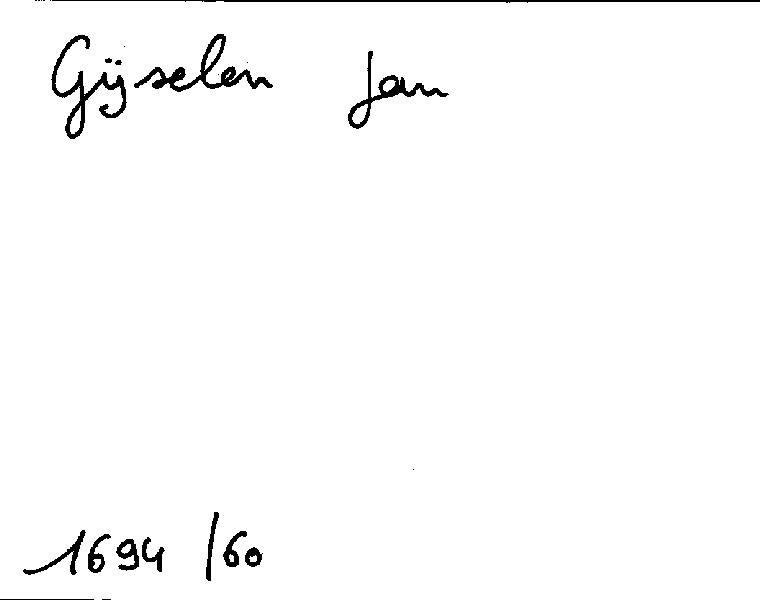 Gijselen Jan
1694/60